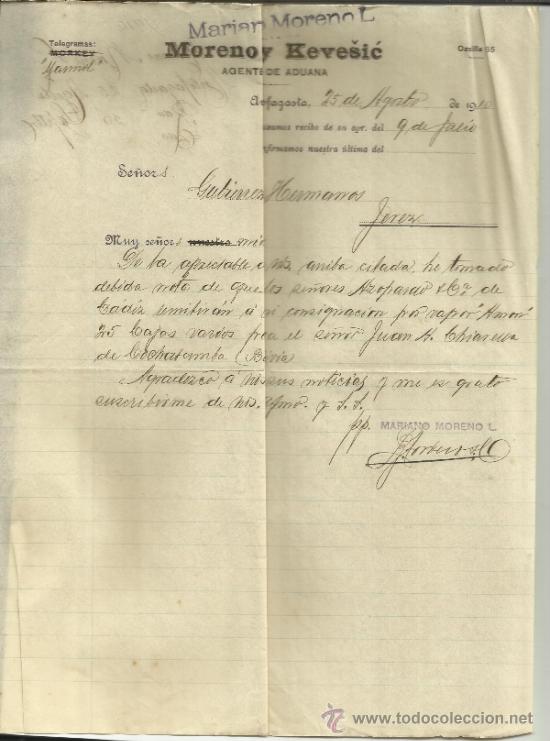 Mariano Moreno L.
Telegramas:
MORKEY
"Marmol"
Moreno y Kevešić
AGENTE DE ADUANA
Casilla 65
Antofagasta, 25 de Agosto de 1910
Acusamos recibo de su apr. del 9 de Julio
Confirmamos nuestra última del
Señores
Gutierrez Hermanos
Jerez
Muy señores nuestro mio
De la apreciable de Uds. arriba citada, he tomado
debida nota de que los señores Azopardo & Ca de
Cádiz remitirán á mi consignación por vapor
25 Cajas varios para el señor Juan A. Chiarella
de Cochabamba (Bivia
Agradezco á Uds. sus noticias y me es grato
suscribirme de Uds. Afmo. y S. S.
pp. MARIANO MORENO L.
www.todocoleccion.net